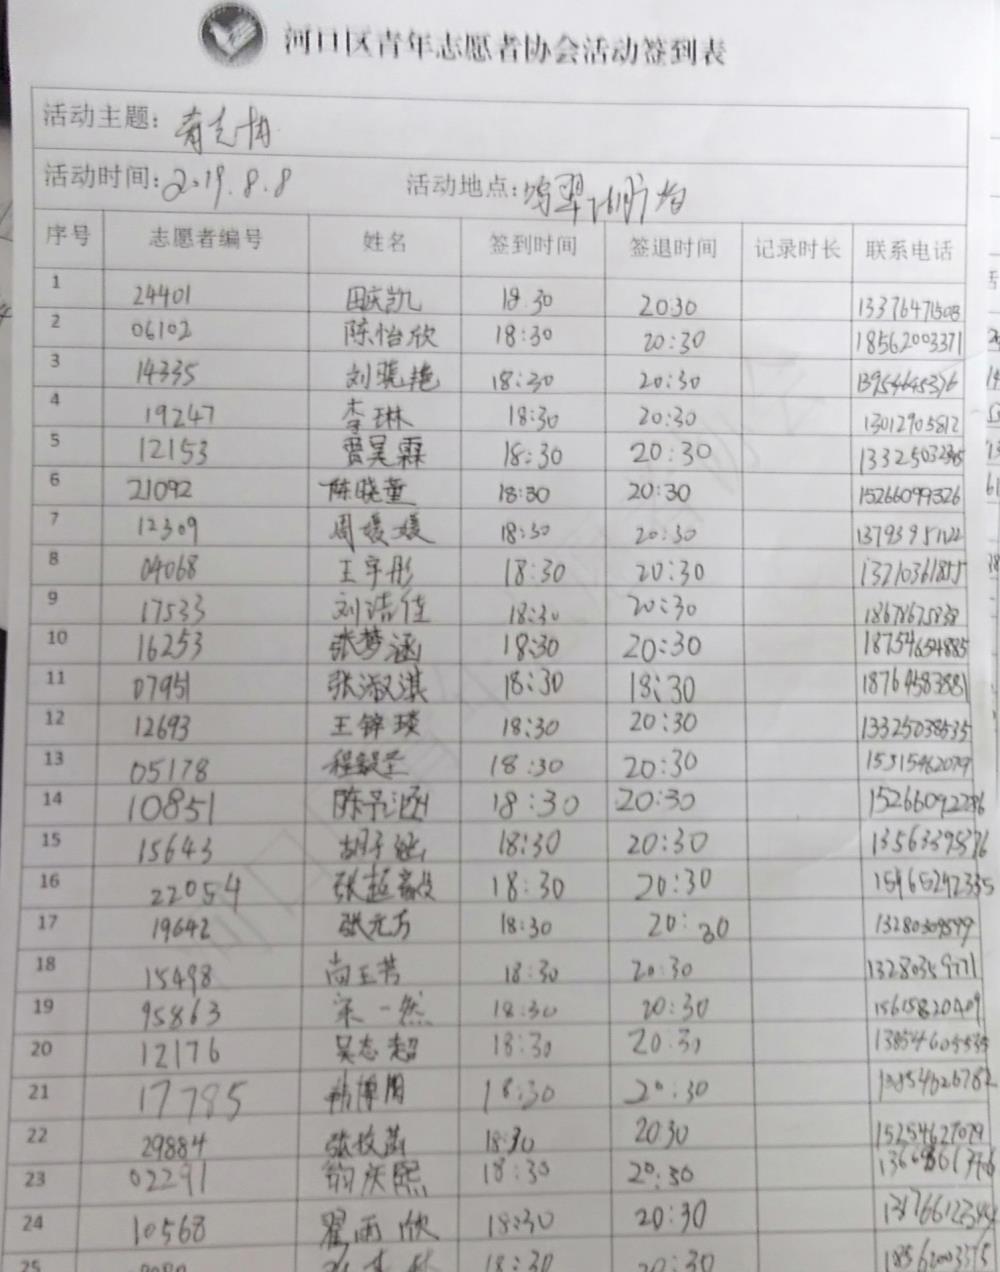 河口区青年志愿者协会活动签到表
活动主题: 青志协
活动时间: 2019.8.8 活动地点:
序号 志愿者编号 姓名 签到时间 签退时间 记录时长 联系电话
1 24401 田庆凯 18.30 20:30
2 06102 陈怡欣 18:30 20:30 18562003371
3 14335 刘晓艳 18:30 20:30 13954645376
4 19247 李琳 18:30 20:30 13012905812
5 12153 贾昊霖 18:30 20:30
6 21092 陈晓童 18:30 20:30 15266099326
7 12309 周媛媛 18:30 20:30
8 04068 王宇彤 18:30 20:30 13210361855
9 17533 刘洁佳 18:30 20:30
10 16253 张梦涵 18:30 20:30 18754654885
11 07951 张淑淇 18:30 18:30 18764583881
12 12693 王锌琰 18:30 20:30 13325038535
13 05178 18:30 20:30 15315462079
14 10851 陈予涵 18:30 20:30 15266092286
15 15643 胡子 18:30 20:30 13563395376
16 22054 张超毅 18:30 20:30 15465242335
17 19642 张元方 18:30 20:30
18 15498 尚玉芳 18:30 20:30 13280359771
19 95863 宋一然 18:30 20:30 15615820409
20 12176 吴志超 18:30 20:30 13854605535
21 17785 韩博闻 18:30 20:30
22 29884 张牧菡 18:30 2030 15254627079
23 02291 庆熙 18:30 20:30
24 10568 翟雨欣 18:30 20:30
25 18:30 20:30 18562003375